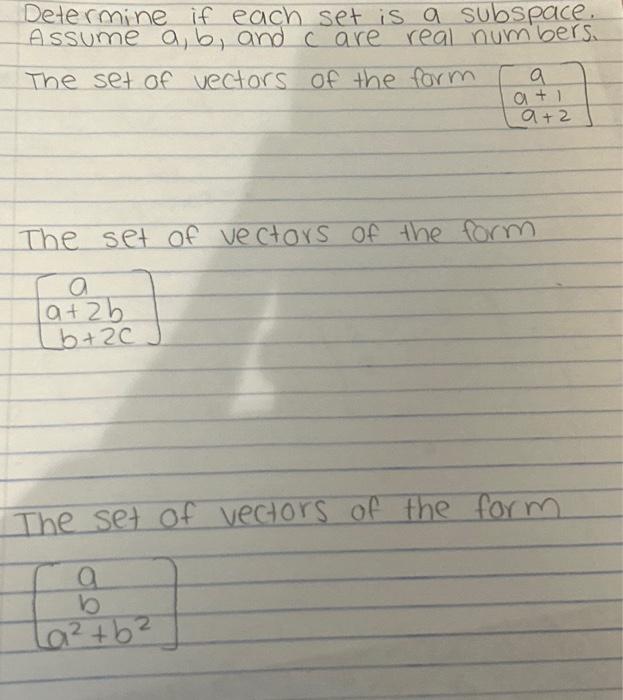 Determine if each set is a subspace.
Assume a, b, and c are real numbers.
The set of vectors of the form
a
a + 1
a + 2
The set of vectors of the form
a
a + 2b
b + 2c
The set of vectors of the form
a
b
a² + b²